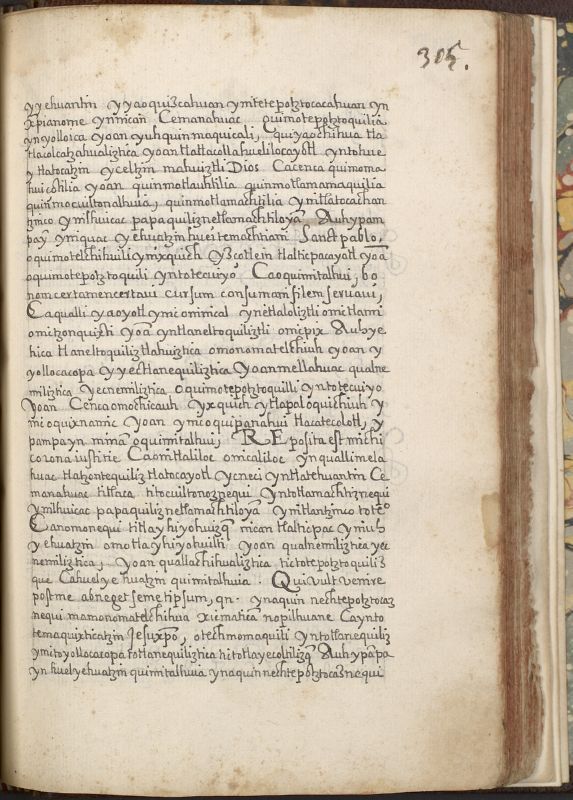 305.
yyehuantin yyaoquizcahuan ymtetepotztocacahuan yn
xpianome ynnican Cemanahuac quimotepotztoquilia
ynyolloica yoan yuhquinmaquicali, quiyaochihua tla
tlacolcatzahualiztica yoan tlatlacollahuelilocayotl yntohue
y tlatocatzin yceltzin mahuiztli Dios Cacenca quimoma
huicotilia yoan quinmotlauhtilia quinmotlamamaquilia
quinmocuiltonalhuia, quinmotlamachtilia ymtlatocachan
tzinco ymilhuicac papaquiliznetlamachtiloyan Auhypam
pay yniquac yehuatzin huei temachtiani Sanct pablo,
oquimotelchihuili ymixquich yzcotlein tlalticpacayotl yoā
oquimotepotztoquili yntotecuiyo Caoquimitalhui, bo
nom certamen certavi cursum consumavi fidem servavi,
Caqualli yaoyotl ynic onimical ynetlaloliztli onictlami
onictzonquixti yoā yntlaneltoquiliztli onicpix Auhye
hica tlaneltoquiliztlahuiztica omonomatelchiuh yoan y
yollocacopa yyectlanequiliztica yoanmellahuac qualne
miliztica yecnemiliztica oquimotepotztoquilli yntotecuiyo
yoan Cenca omochicauh yxquich ytlapal oquichiuh y
nic oquixnamic yoan ynic oquipanahui tlacatecolotl, y
pampa yn nimā oquimitalhui, REposita est michi
corona iustitie Caonitlaliloc onicaliloc ynquallimela
huac tlahtzontequiliztlatocayotl ycneci yntlatehuantin Ce
manahuac titlaca titocuiltonozzequi yntotlamachtiznequi
ymilhuicac papaquiliznetlamachtiloyā ymtlantzinco totec<sup>o</sup>
Canomonequi titlayhiyohuizq nican tlalticpac ynuh
yehuatzin omotlayhiyohuilli yoan qualnemiliztica yec
nemiliztica, yoan quallachihualiztica tictotepotztoquiliz
que Cahuelyehuatzin quimitalhuia. Qui vult venire
post me abneget semetipsum, qn. ynaquin nechtepotztocaz
nequi mamonomatelchihua xicmatica nopilhuane Caynto
temaquixticatzin Jesuxpō, otechmomaquili yntotlanequiliz
ymitoyollocacopa totlanequiliztica tictotlayecoltilizq Auhypāpa
yn huelyehuatzin quimitalhuia ynaquin nechtepotztocaznequi